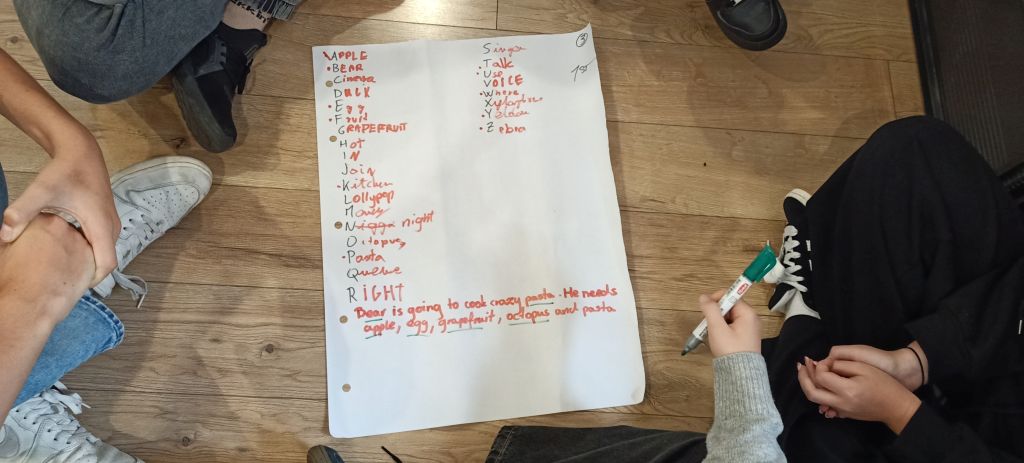 APPLE
BEAR
Cinema
DUCK
Egg
Fruit
GRAPEFRUIT
Hot
IN
Join
Kitchen
Lollypop
N night
Octopus
Pasta
Queue
RIGHT
Bear is going to cook crazy pasta. He needs
apple, egg, grapefruit, octopus and pasta
3
Talk
Use
VOICE
Where
Zebra